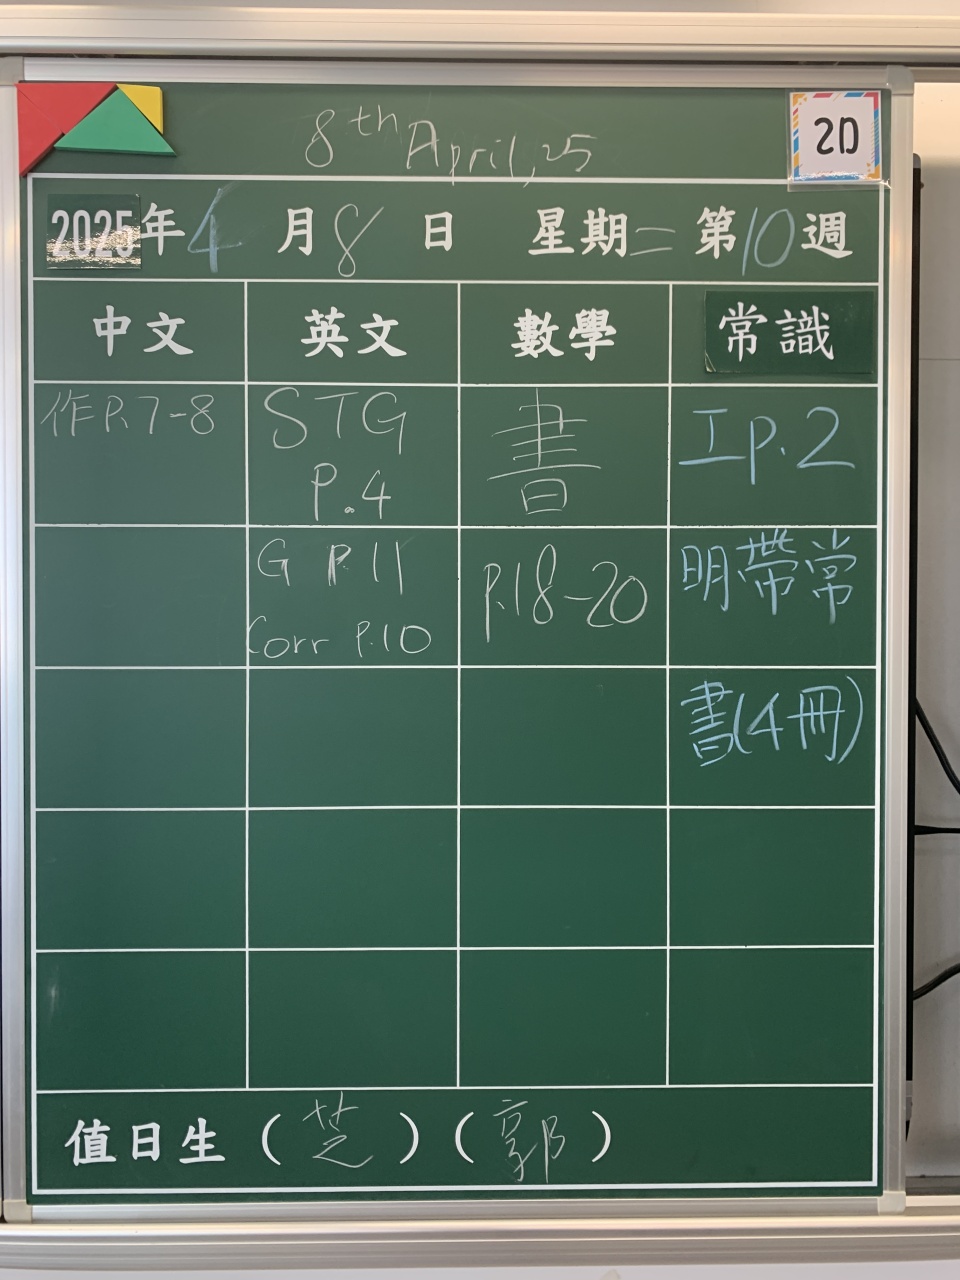 8th April, 25
2D
2025年4月8日 星期二 第10週
中文 英文 數學 常識
作P.7-8
STG
P.4
書
工P.2
G P.11
Corr P.10
P.18-20
明帶常
書(4冊)
值日生(芝)(郭)